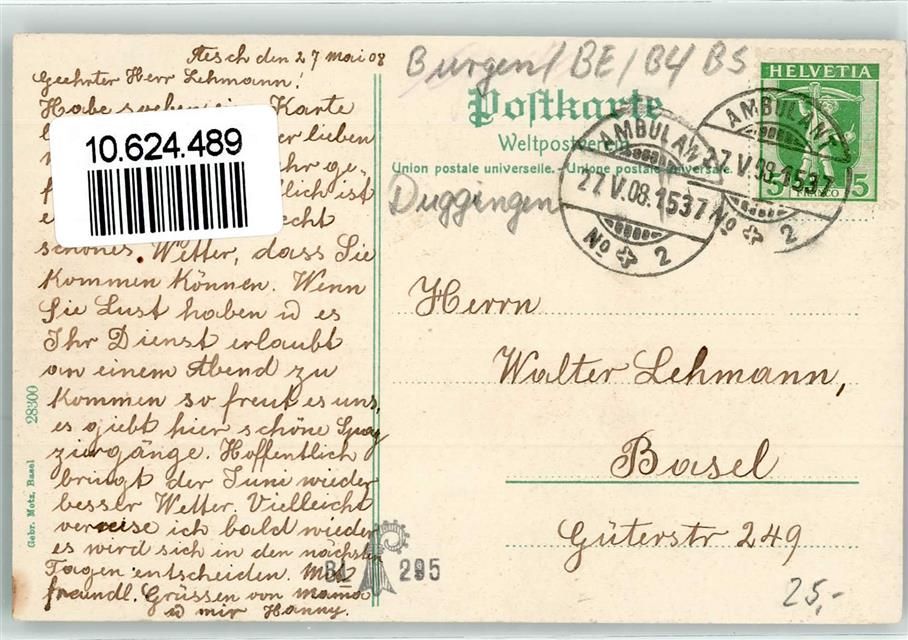 Aesch den 27 Mai 08
Geehrter Herr Lehmann!
Habe soeben Karte
er lieben
ge-
ist
echt
schönes. Wetter, dass Sie
kommen können. Wenn
Sie Lust haben u es
Ihr Dienst erlaubt
an einem Abend zu
kommen so freut es uns,
es giebt hier schöne Spaz
ziergänge. Hoffentlich
bringt der Juni wieder
besser Wetter. Vielleicht
verreise ich bald wieder
es wird sich in den nächsten
Tagen entscheiden. Mit
freundl. Grüssen von mama
u mir Hanny.
10.624.489
Gebr. Metz, Basel 28300
Burgen / BE / B4 BS
Postkarte
Weltpostverein
Union postale universelle. - Unione postale universale.
Duggingen
HELVETIA
5 FRANCO 5
AMBULANT
27.V.08.1537
No 2
AMBULANT
27.V.08.1537
No 2
Herrn
Walter Lehmann,
Basel
Güterstr 249
BL 295
25,-